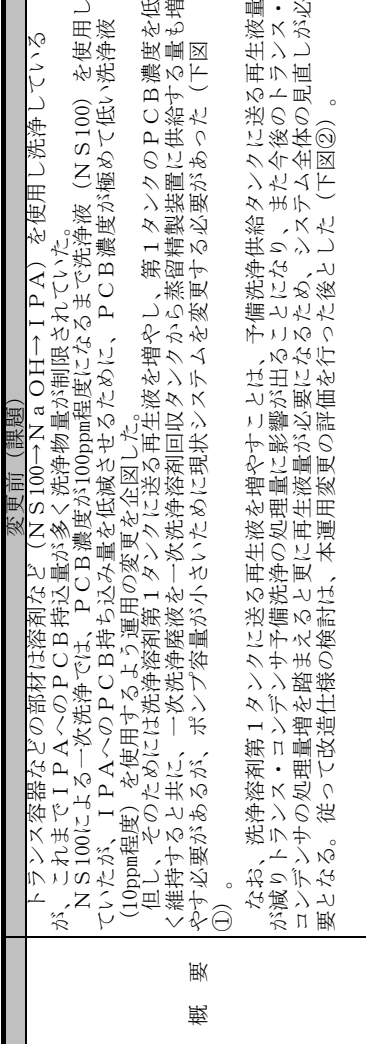 変更前(課題)
概 要
トランス容器などの部材は溶剤など(NS100→NaOH→IPA)を使用し洗浄している
が、これまでIPAへのPCB持込量が多く洗浄物量が制限されていた。
NS100による一次洗浄では、PCB濃度が100ppm程度になるまで洗浄液(NS100)を使用し
ていたが、IPAへのPCB持ち込み量を低減させるために、PCB濃度が極めて低い洗浄液
(10ppm程度)を使用するよう運用の変更を企図した。
但し、そのためには洗浄溶剤第1タンクに送る再生液を増やし、第1タンクのPCB濃度を低
く維持すると共に、一次洗浄廃液を一次洗浄溶剤回収タンクから蒸留精製装置に供給する量も増
やす必要があるが、ポンプ容量が小さいために現状システムを変更する必要があった(下図
①)。
なお、洗浄溶剤第1タンクに送る再生液を増やすことは、予備洗浄供給タンクに送る再生液量
が減りトランス・コンデンサ予備洗浄の処理量に影響が出ることになり、また今後のトランス・
コンデンサの処理量増を踏まえると更に再生液量が必要になるため、システム全体の見直しが必
要となる。従って改造仕様の検討は、本運用変更の評価を行った後とした(下図②)。